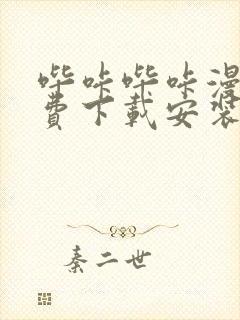 哔咔哔咔漫
费下载安装
秦二世